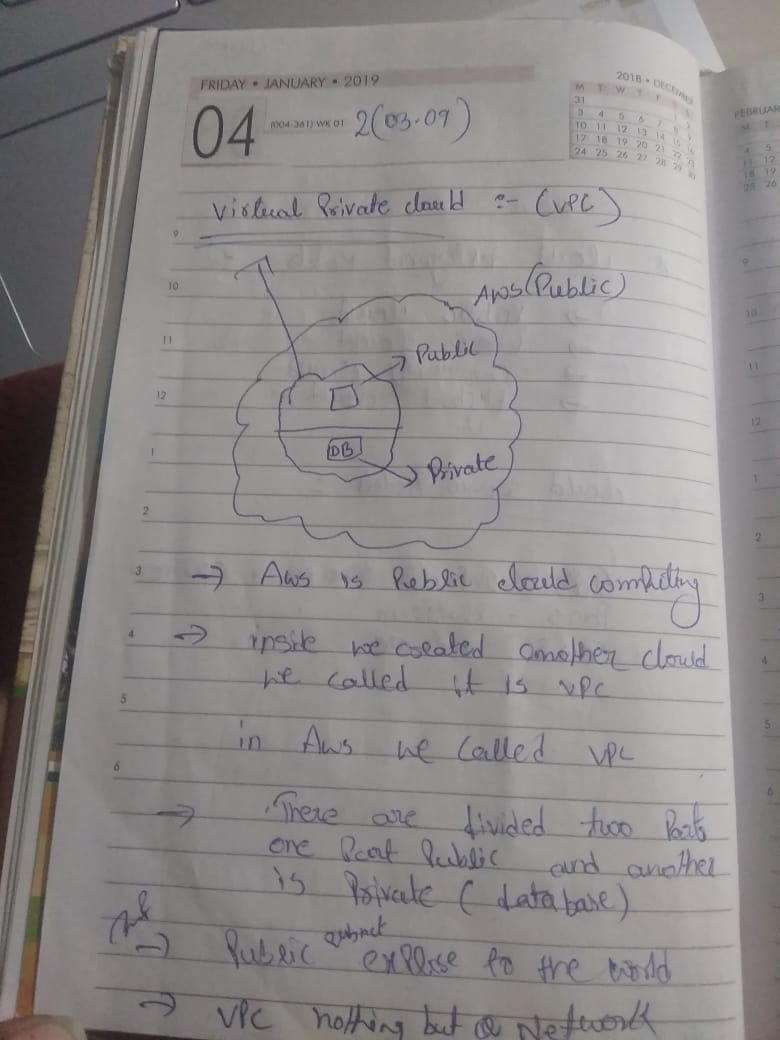 FRIDAY • JANUARY • 2019
2018 • DECEMBER
04
(004-361) WK 01
2(03.09)
M T W T F
31
3 4 5 6 7 8 9
10 11 12 13 14 15 16
17 18 19 20 21 22 23
24 25 26 27 28 29 30
FEBRUAR
M T
4 5
11 12
18 19
25 26
Virtual Private cloud :- (VPC)
9
10
AWS (Public)
11
Public
12
1
DB
Private
2
3
→ Aws is Public cloud computing
4
→ inside we created another cloud
we called it is VPC
5
in Aws we called VPC
6
→ There are divided two Parts
one Part Public and another
is Private (database)
→ Public subnet expose to the world
→ VPC nothing but a Network
9
10
11
12
1
2
3
4
5
6